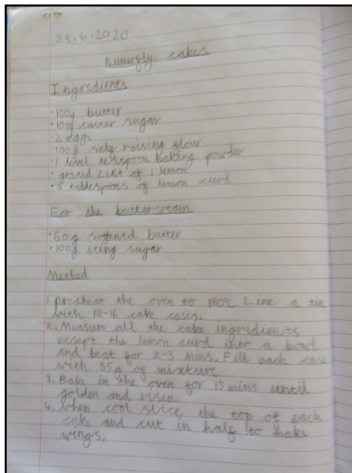 23.6.2020
Butterfly cakes
Ingredients
•100g butter
•100g caster sugar
•2 eggs
•100g self raising flour
•1 level teaspoon baking powder
•grated zest of 1 lemon
• tablespoons of lemon curd
For the buttercream
•60g softened butter
•100g icing sugar
Method
1. preheat the oven to Line a tin
with 12-16 cake cases.
2. Measure all the cake ingredients
except the lemon curd into a bowl
and beat for 2-3 mins. Fill each case
with 35g of mixture
3. Bake in the oven for 15 mins until
golden and risen
4. When cool slice the top of each
cake and cut in half to make
wings.